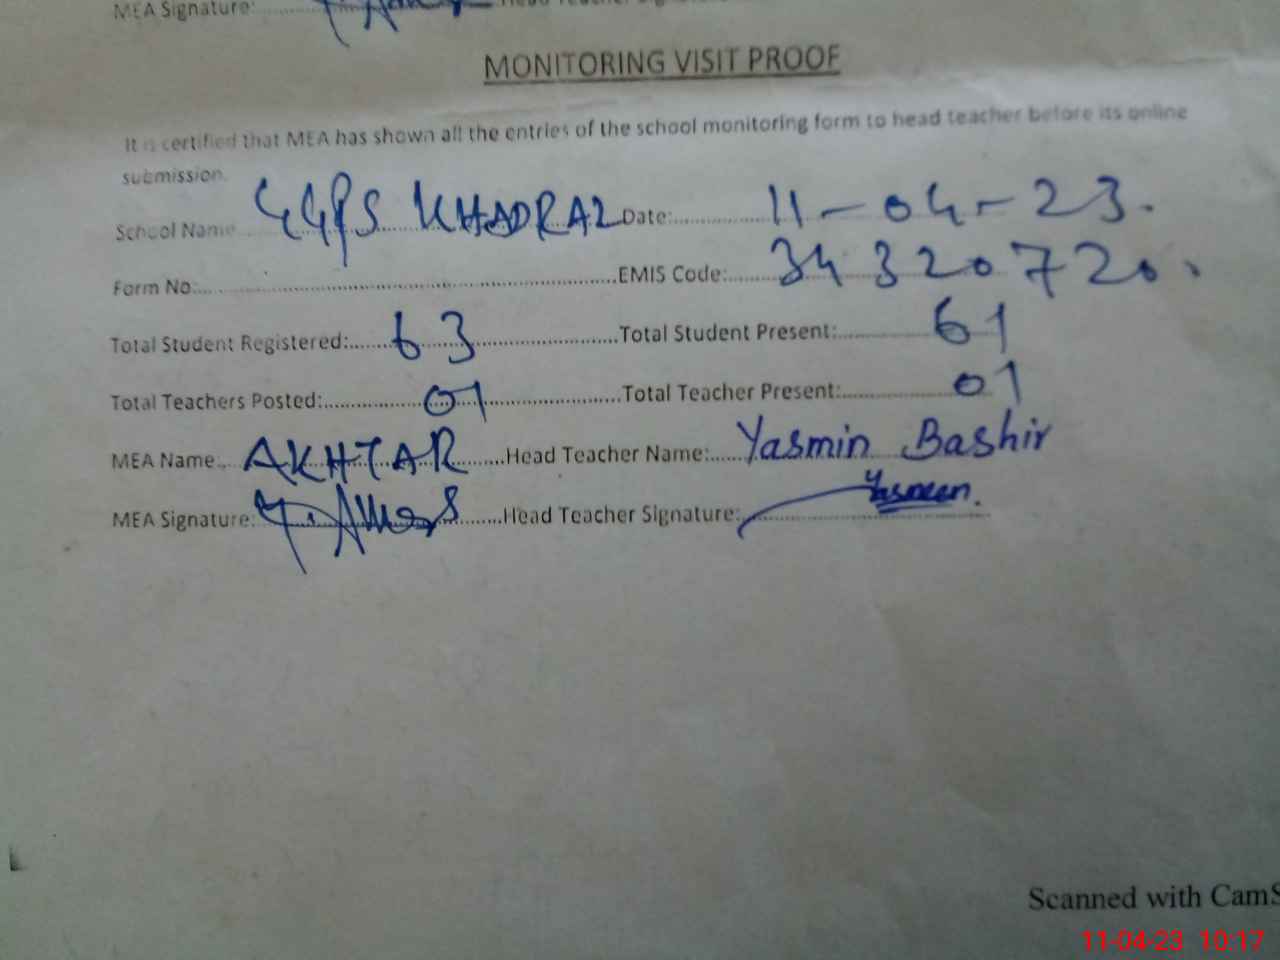 MEA Signature:
MONITORING VISIT PROOF
It is certified that MEA has shown all the entries of the school monitoring form to head teacher before its online
submission.
School Name GGPS KHADRAL Date: 11-04-23.
Form No: EMIS Code: 34320720.
Total Student Registered: 63 Total Student Present: 61
Total Teachers Posted: 01 Total Teacher Present: 01
MEA Name AKHTAR Head Teacher Name: Yasmin Bashir
MEA Signature: Head Teacher Signature: Yasmeen.
Scanned with CamS
11-04-23 10:17